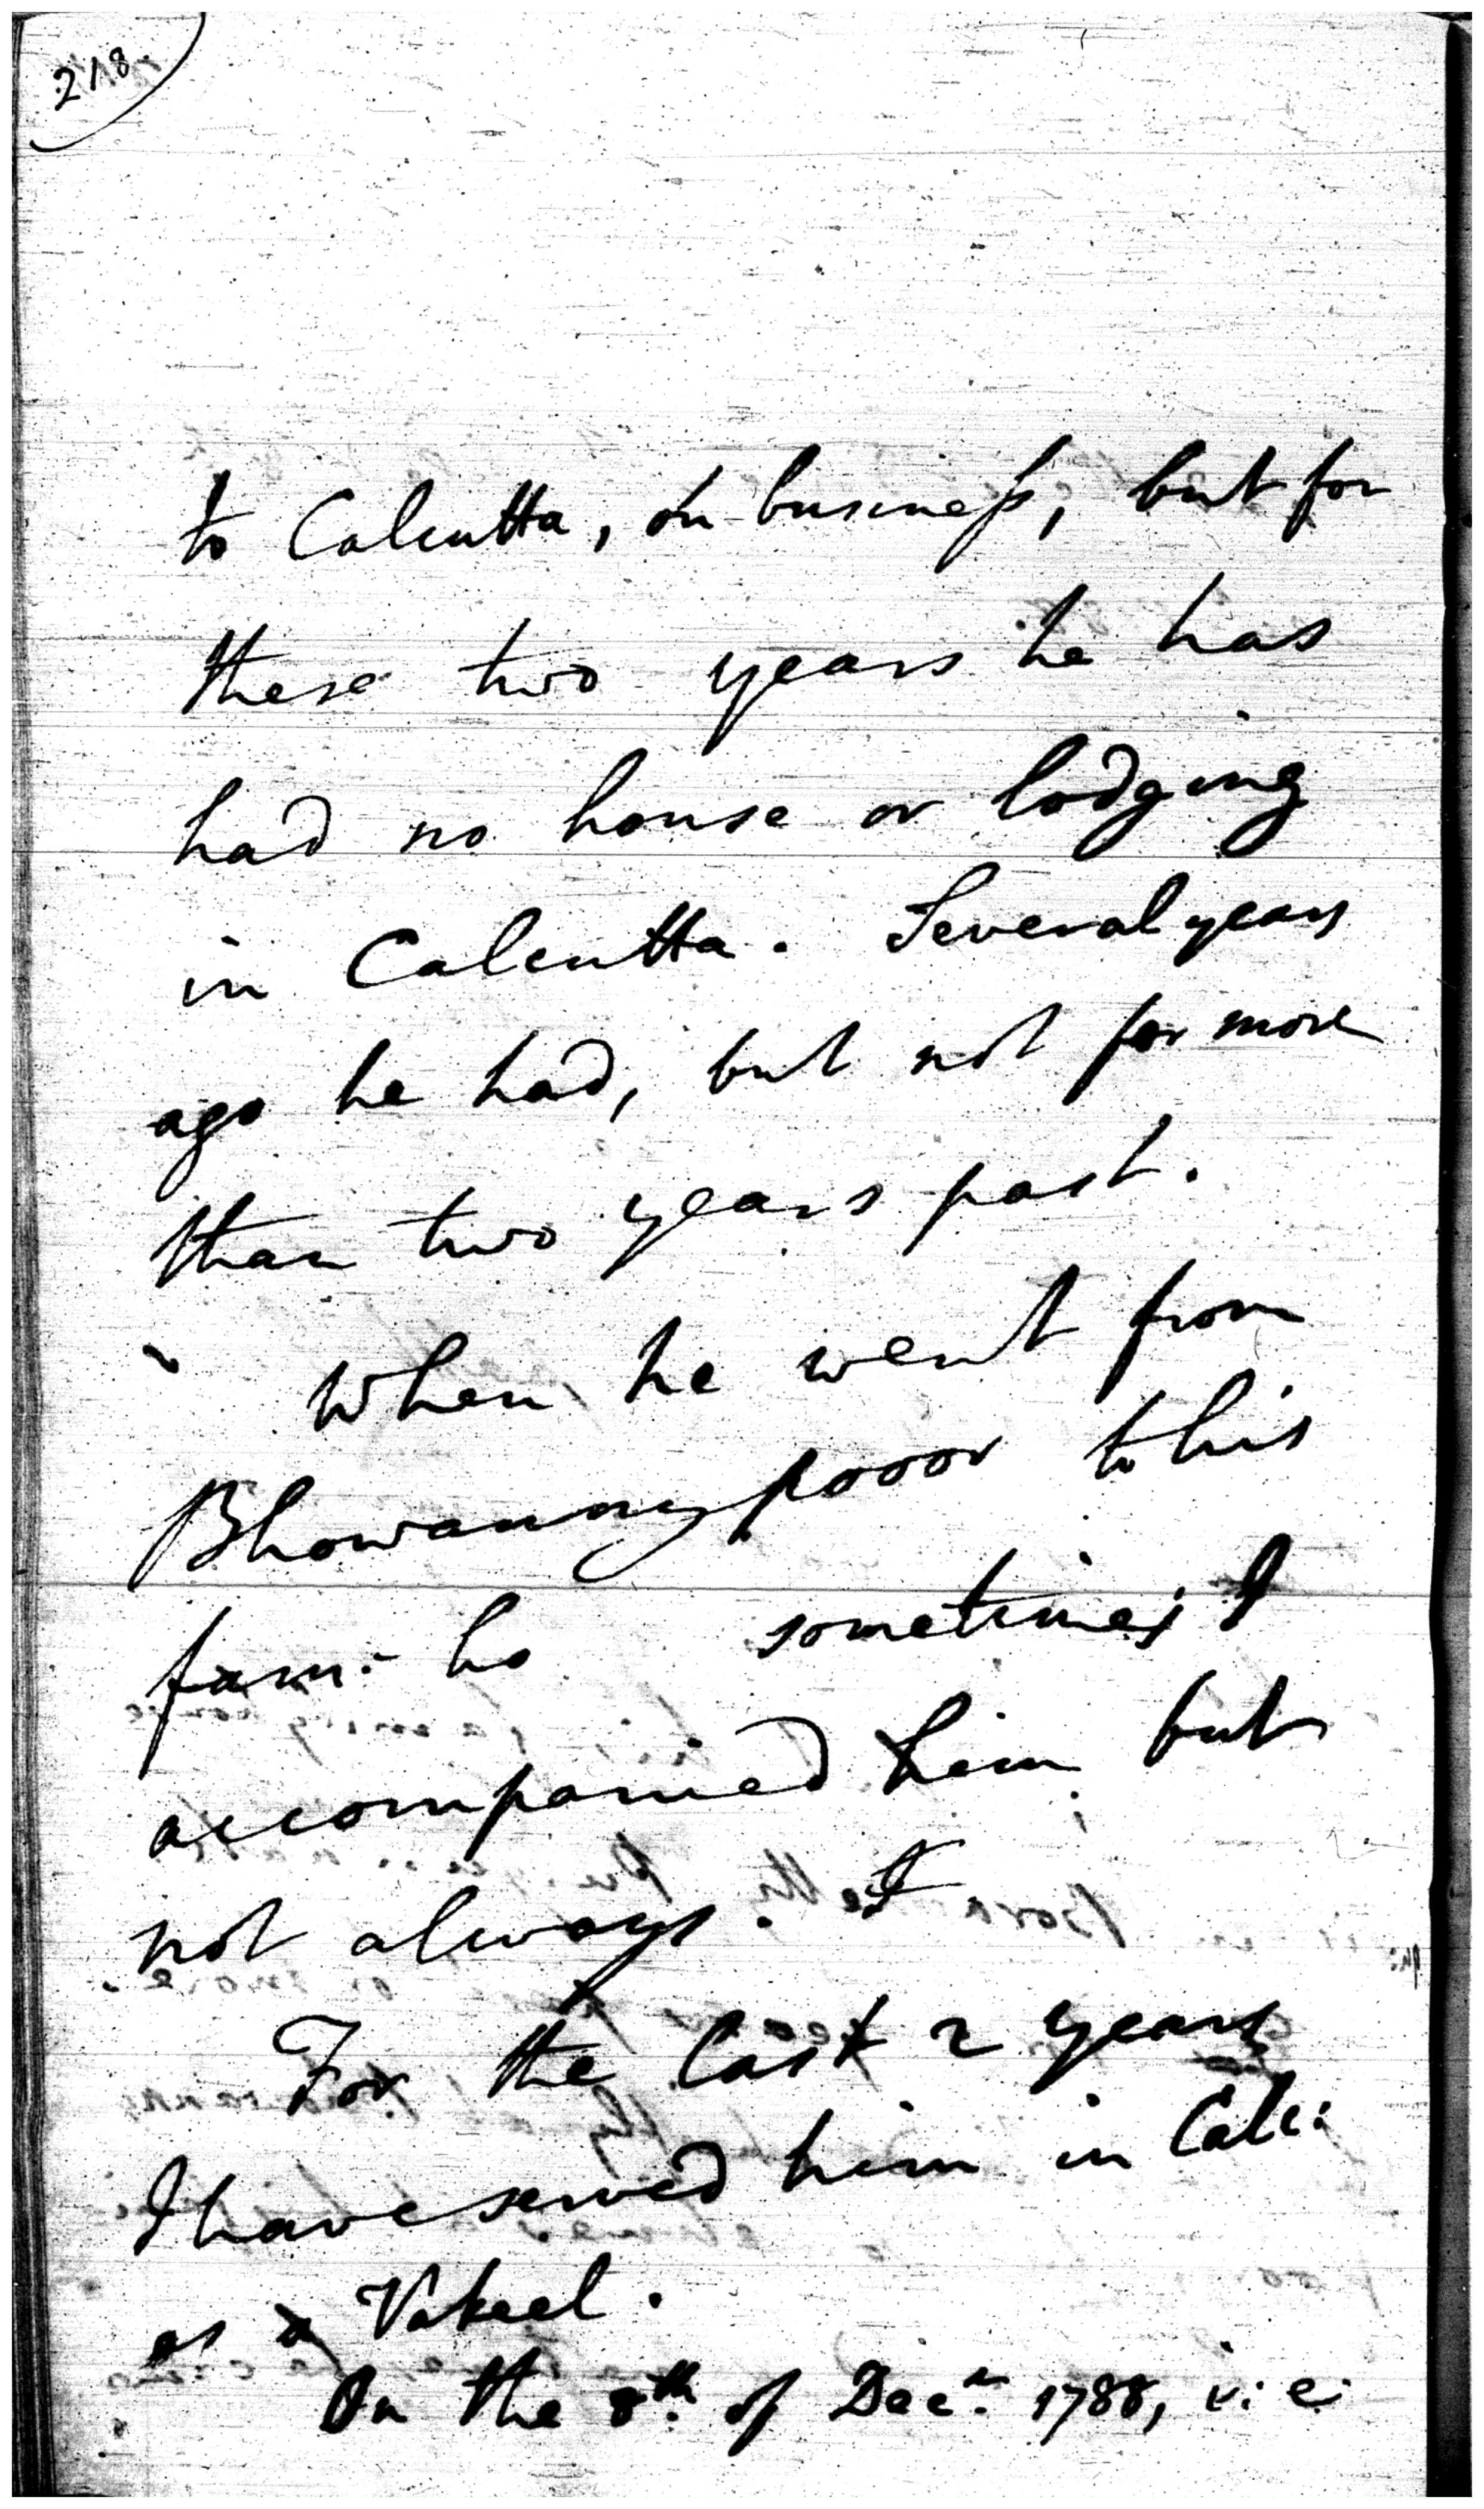 218
to Calcutta, on business, but for
these two years he has
had no house or lodging
in Calcutta. Several years
ago he had, but not for more
than two years past.
When he went from
Bhowannypooor to his
fam:- ho sometimes I
accompanied him but
not always. I
For the last 2 years
I have served him in Calc:
as a Vakeel.
On the 8th. of Decr. 1788, i: e: